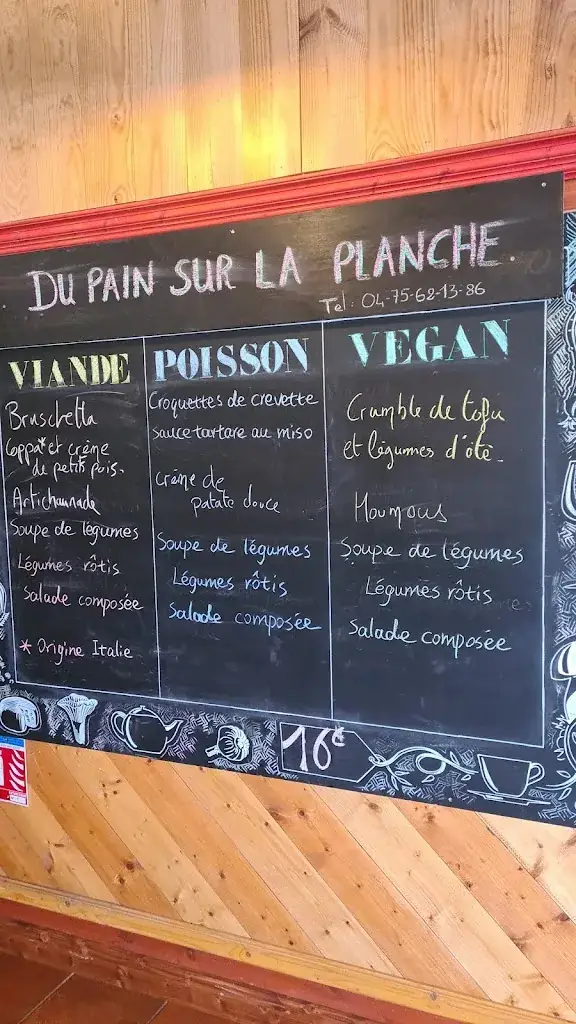 DU PAIN SUR LA PLANCHE.
Tel: 04-75-62-13-86
VIANDE
Bruschetta
Coppa* et crème
de petits pois.
Artichaunade
Soupe de légumes
Légumes rôtis
Salade composée
* Origine Italie
POISSON
Croquettes de crevette
sauce tartare au miso
Crème de
patate douce
Soupe de légumes
Légumes rôtis
Salade composée
VEGAN
Crumble de tofu
et légumes d'été.
Houmous
Soupe de légumes
Légumes rôtis
Salade composée
16€